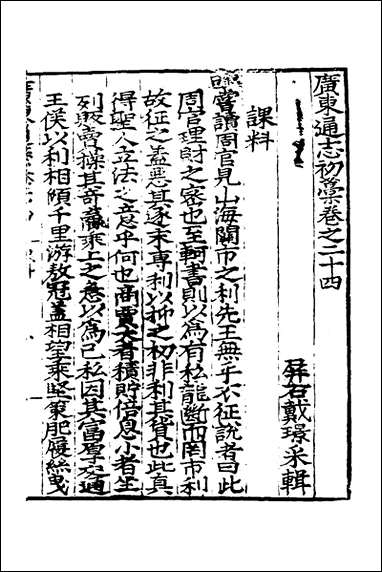 廣東通志初藁卷之二十四
屏石戴璟采輯
課料
嘗讀周官見山海關市之利先王無乎不征說者曰此
周官理財之密也至軻書則以為有私龍斷而罔市利
故征之蓋惡其逐末專利以抑之初非利其貨也此真
得聖人立法之意乎何也商賈大者積貯倍息小者坐
列販賣操其奇贏乘上之急以為己私因其富厚交通
王侯以利相傾千里游敖冠蓋相望乘堅策肥履絲曳